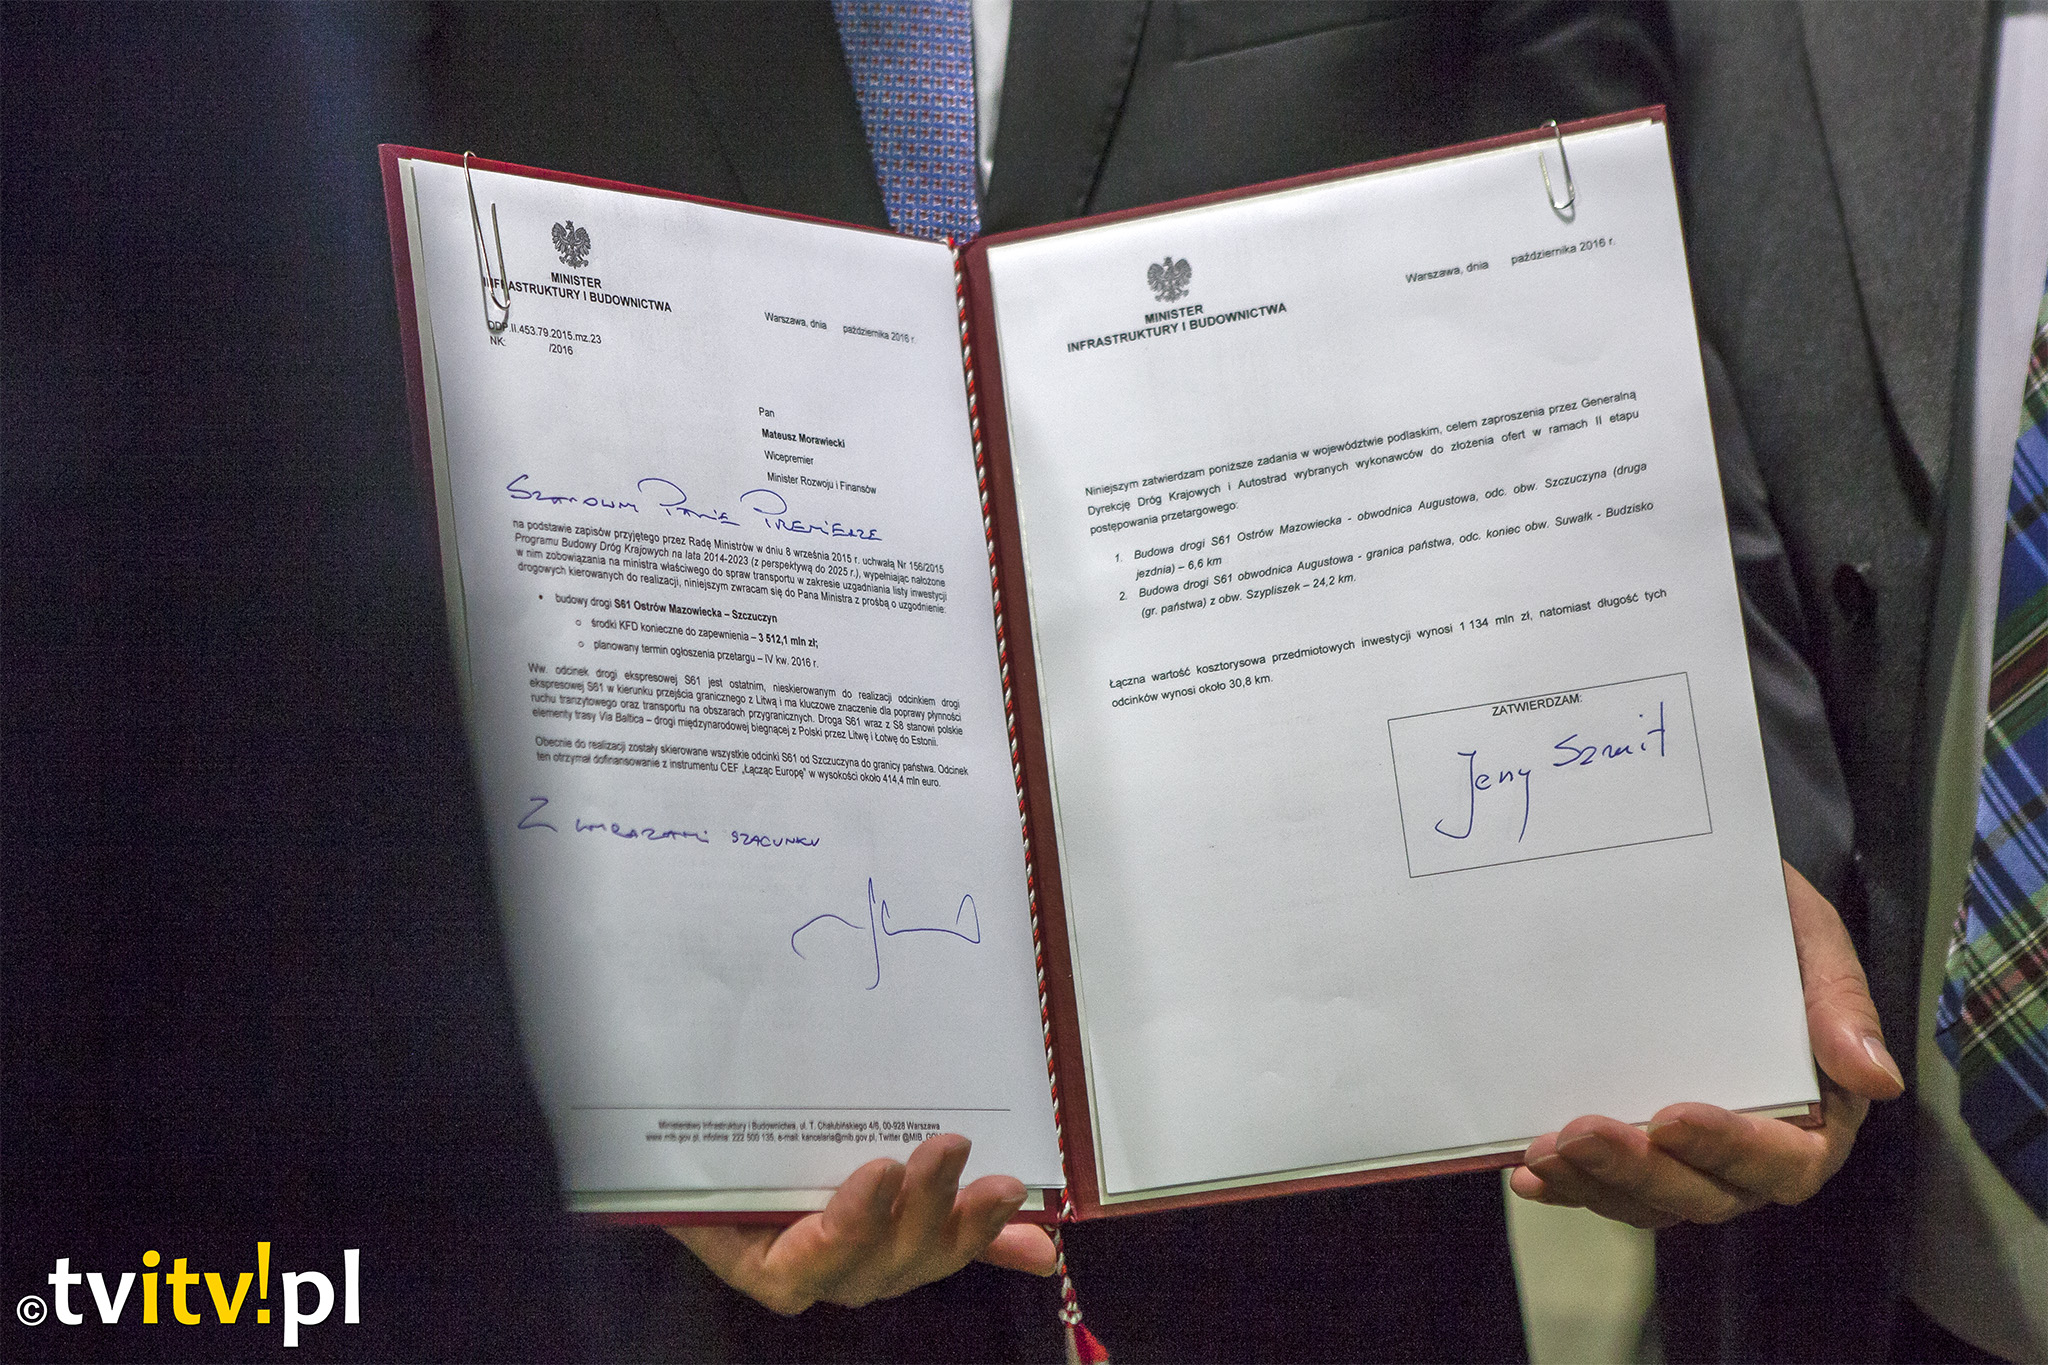 MINISTER
INFRASTRUKTURY I BUDOWNICTWA
DDP.II.453.79.2015.mz.23
NK: /2016
Warszawa, dnia października 2016 r.
Pan
Mateusz Morawiecki
Wicepremier
Minister Rozwoju i Finansów
Szanowny Panie Premierze
na podstawie zapisów przyjętego przez Radę Ministrów w dniu 8 września 2015 r. uchwałą Nr 156/2015
Programu Budowy Dróg Krajowych na lata 2014-2023 (z perspektywą do 2025 r.), wypełniając nałożone
w nim zobowiązania na ministra właściwego do spraw transportu w zakresie uzgadniania listy inwestycji
drogowych kierowanych do realizacji, niniejszym zwracam się do Pana Ministra z prośbą o uzgodnienie:
• budowy drogi S61 Ostrów Mazowiecka – Szczuczyn
o środki KFD konieczne do zapewnienia – 3 512,1 mln zł;
o planowany termin ogłoszenia przetargu – IV kw. 2016 r.
Ww. odcinek drogi ekspresowej S61 jest ostatnim, nieskierowanym do realizacji odcinkiem drogi
ekspresowej S61 w kierunku przejścia granicznego z Litwą i ma kluczowe znaczenie dla poprawy płynności
ruchu tranzytowego oraz transportu na obszarach przygranicznych. Droga S61 wraz z S8 stanowi polskie
elementy trasy Via Baltica – drogi międzynarodowej biegnącej z Polski przez Litwę i Łotwę do Estonii.
Obecnie do realizacji zostały skierowane wszystkie odcinki S61 od Szczuczyna do granicy państwa. Odcinek
ten otrzymał dofinansowanie z instrumentu CEF „Łącząc Europę" w wysokości około 414,4 mln euro.
Z wyrazami szacunku
Ministerstwo Infrastruktury i Budownictwa, ul. T. Chałubińskiego 4/6, 00-928 Warszawa
www.mib.gov.pl, infolinia: 222 500 135, e-mail: kancelaria@mib.gov.pl, Twitter @MIB_GOV
MINISTER
INFRASTRUKTURY I BUDOWNICTWA
Warszawa, dnia października 2016 r.
Niniejszym zatwierdzam poniższe zadania w województwie podlaskim, celem zaproszenia przez Generalną
Dyrekcję Dróg Krajowych i Autostrad wybranych wykonawców do złożenia ofert w ramach II etapu
postępowania przetargowego:
1. Budowa drogi S61 Ostrów Mazowiecka - obwodnica Augustowa, odc. obw. Szczuczyna (druga
jezdnia) – 6,6 km
2. Budowa drogi S61 obwodnica Augustowa - granica państwa, odc. koniec obw. Suwałk - Budzisko
(gr. państwa) z obw. Szypliszek – 24,2 km.
Łączna wartość kosztorysowa przedmiotowych inwestycji wynosi 1 134 mln zł, natomiast długość tych
odcinków wynosi około 30,8 km.
ZATWIERDZAM:
Jerzy Szmit
©tvitv!.pl